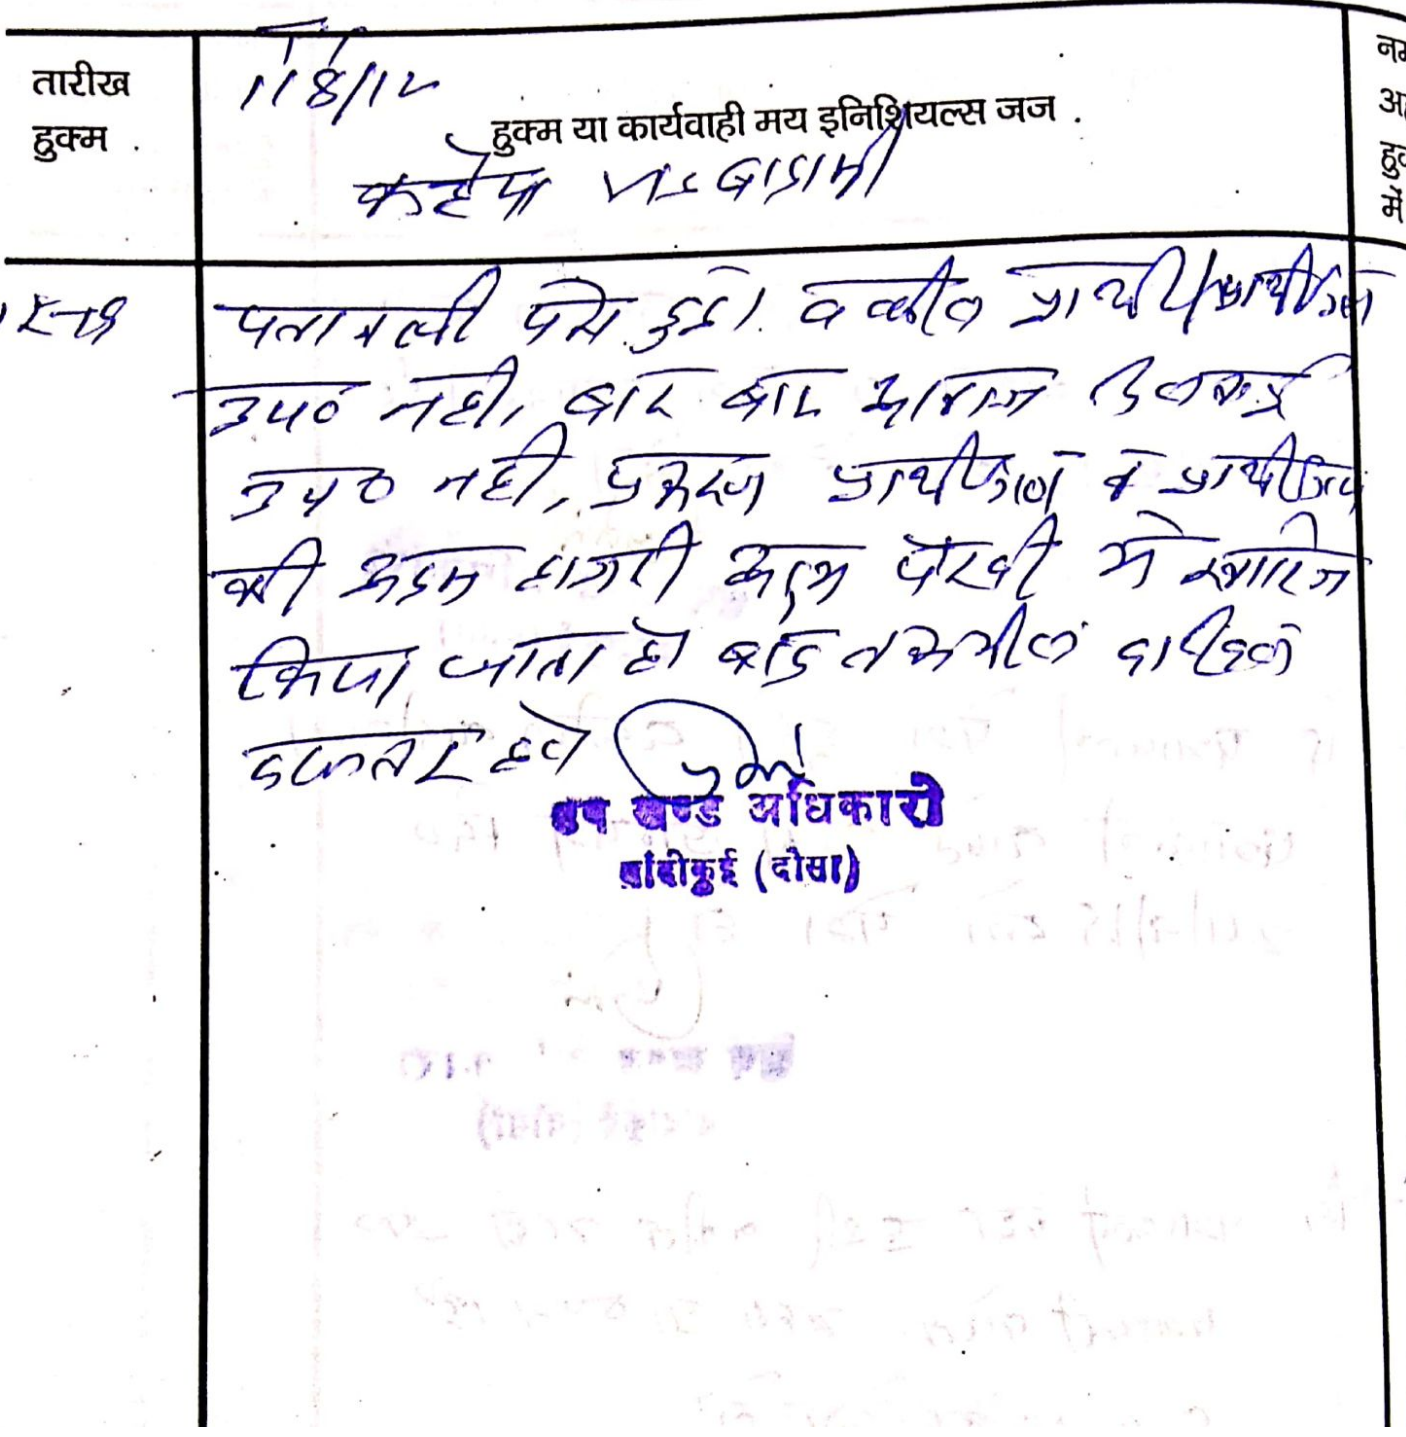 तारीख
हुक्म
118/12
हुक्म या कार्यवाही मय इनिशियल्स जज
कन्हैया v/s बादामी
पत्रावली पेश हुई। वकील प्रार्थी/प्रार्थीगण
उप० नही, बार बार आवाज दिलवाई
उप० नही, प्रकरण प्रार्थीगण व प्रार्थीगण
की अदम हाजरी अदम पैरवी मे खारिज
किया जाता है। बाद तकमील दाखिल
दफतर होवे
उप खण्ड अधिकारी
बांदीकुई (दौसा)